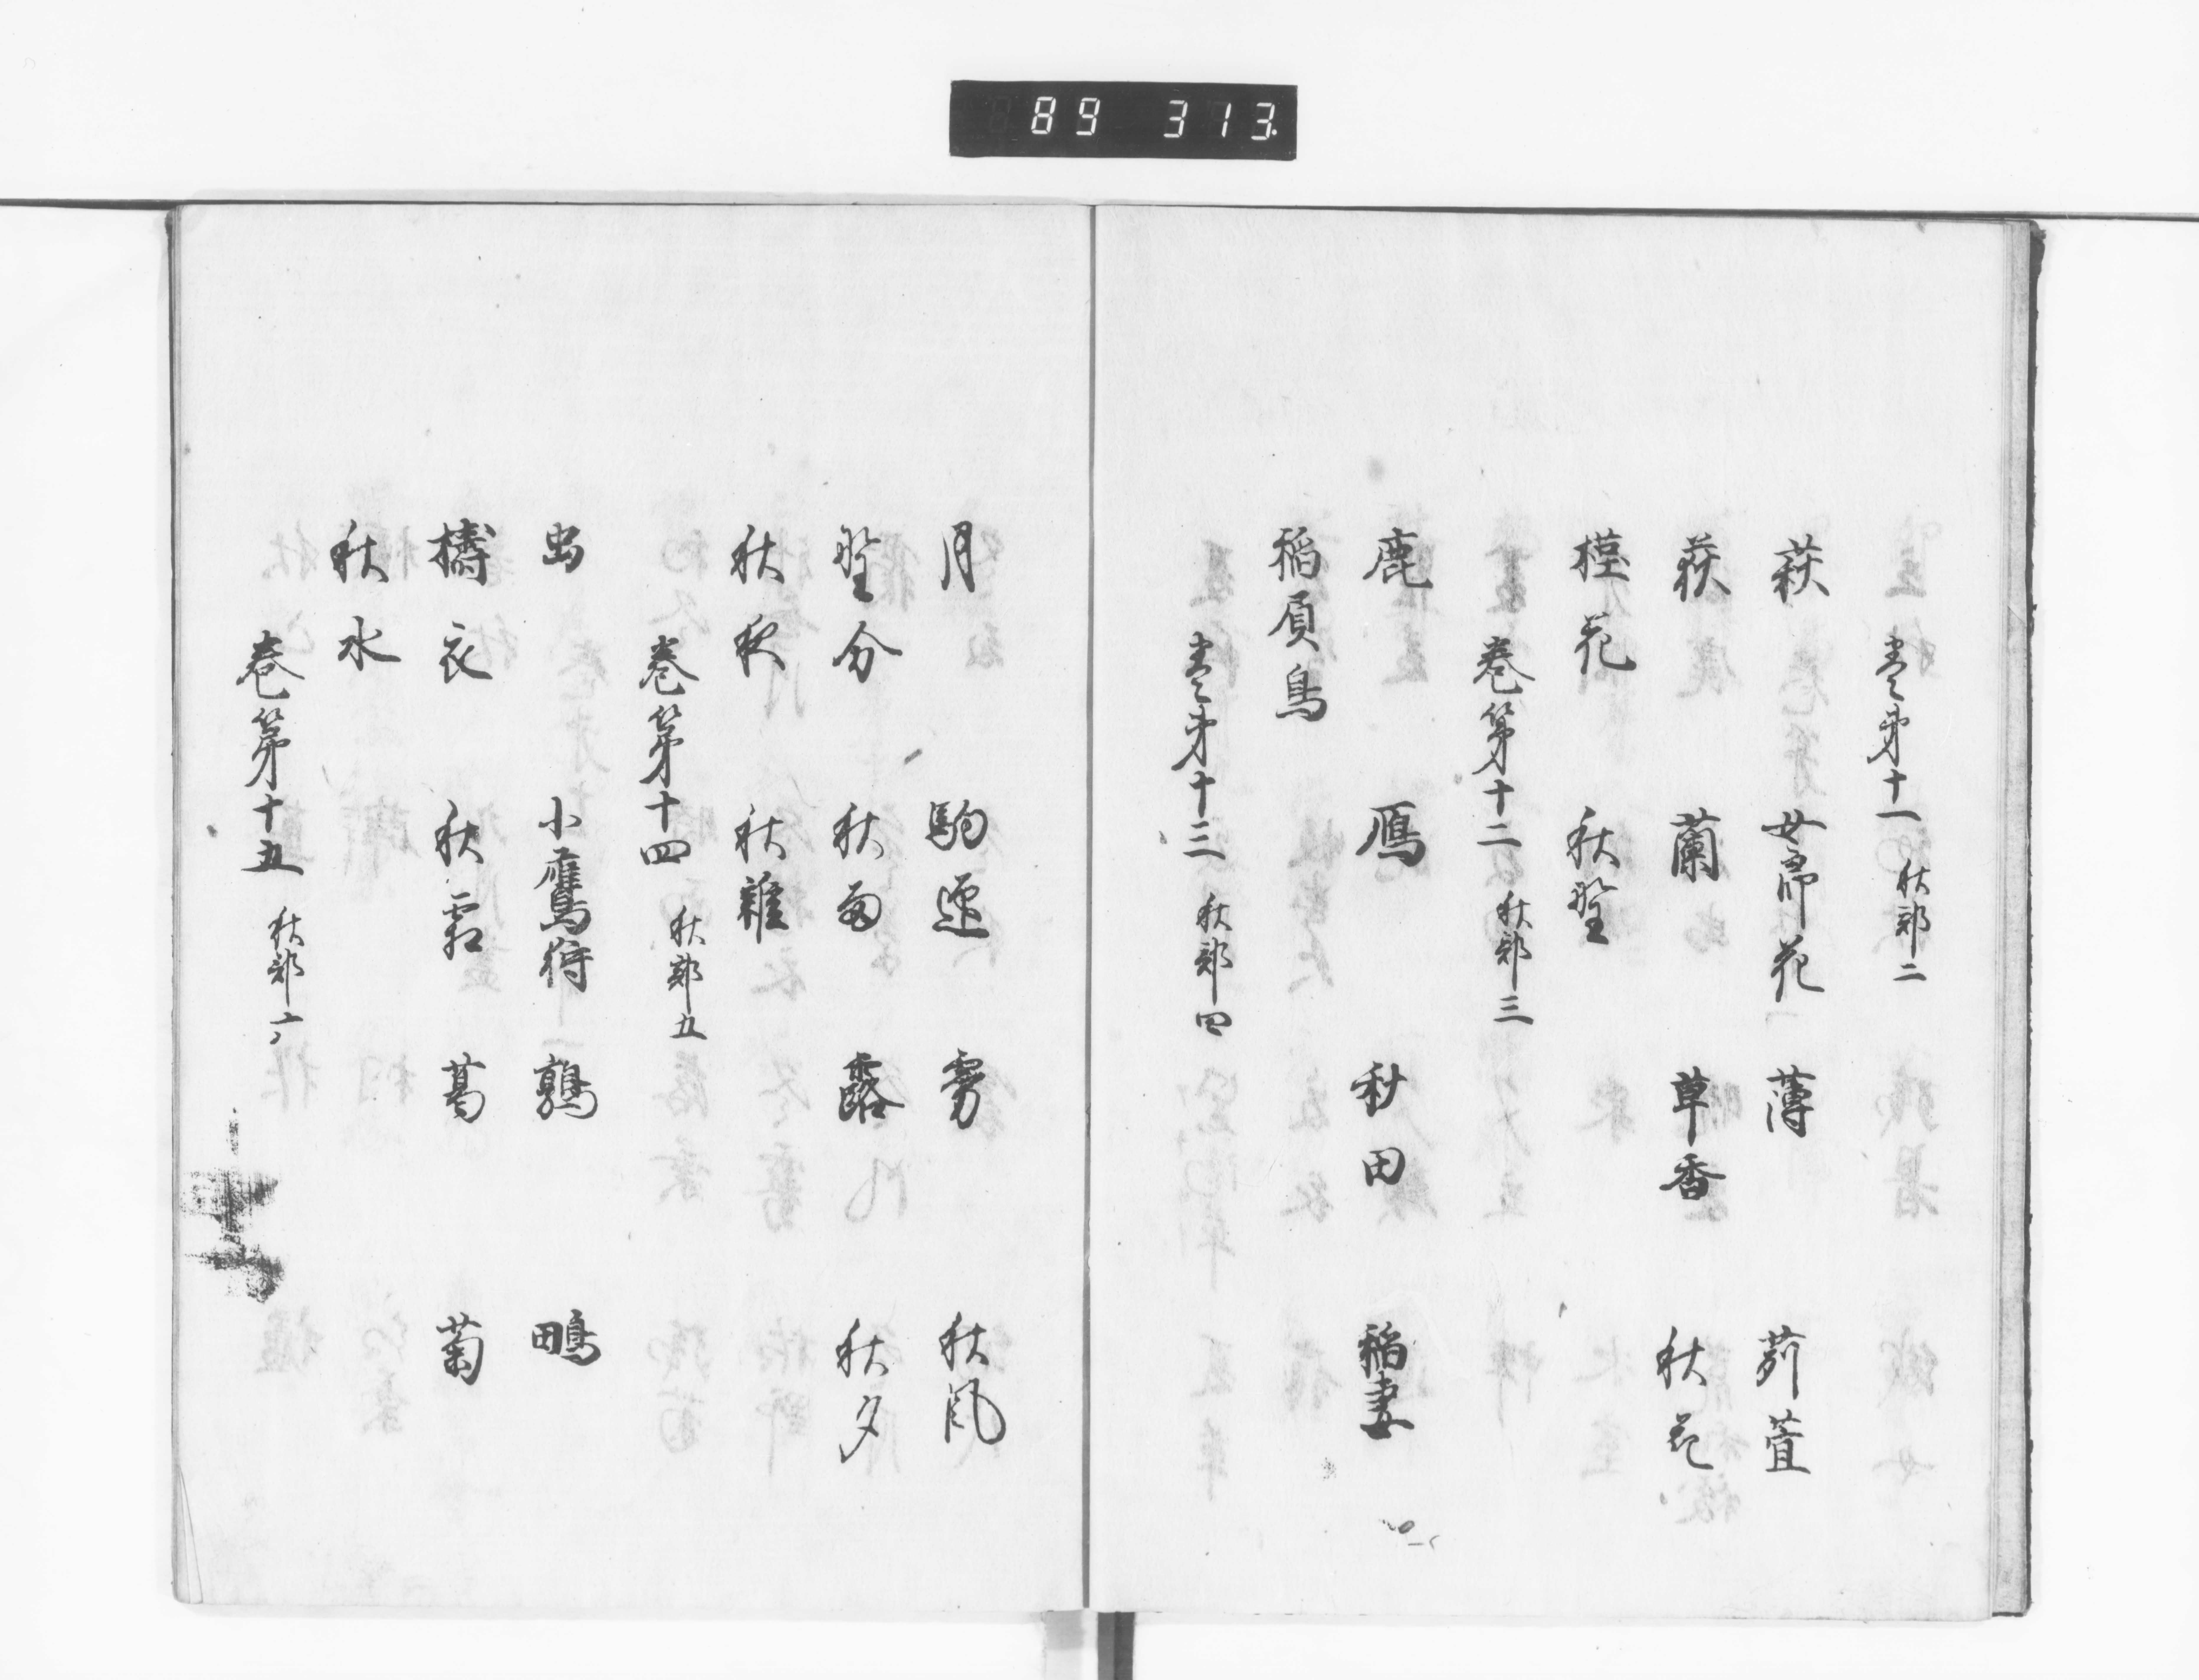 89 313.
巻第十一 秋部二
萩 女郎花 薄 苅萱
荻 蘭 草香 秋花
槿花 秋野
巻第十二 秋部三
鹿 鴈 秋田 稲妻
稲負鳥
巻第十三 秋部四
月 駒迎 霧 秋風
野分 秋雨 露 秋夕
秋夜 秋雑
巻第十四 秋部五
虫 小鷹狩 鶉 鴫
擣衣 秋霜 葛 菊
秋水
巻第十五 秋部六